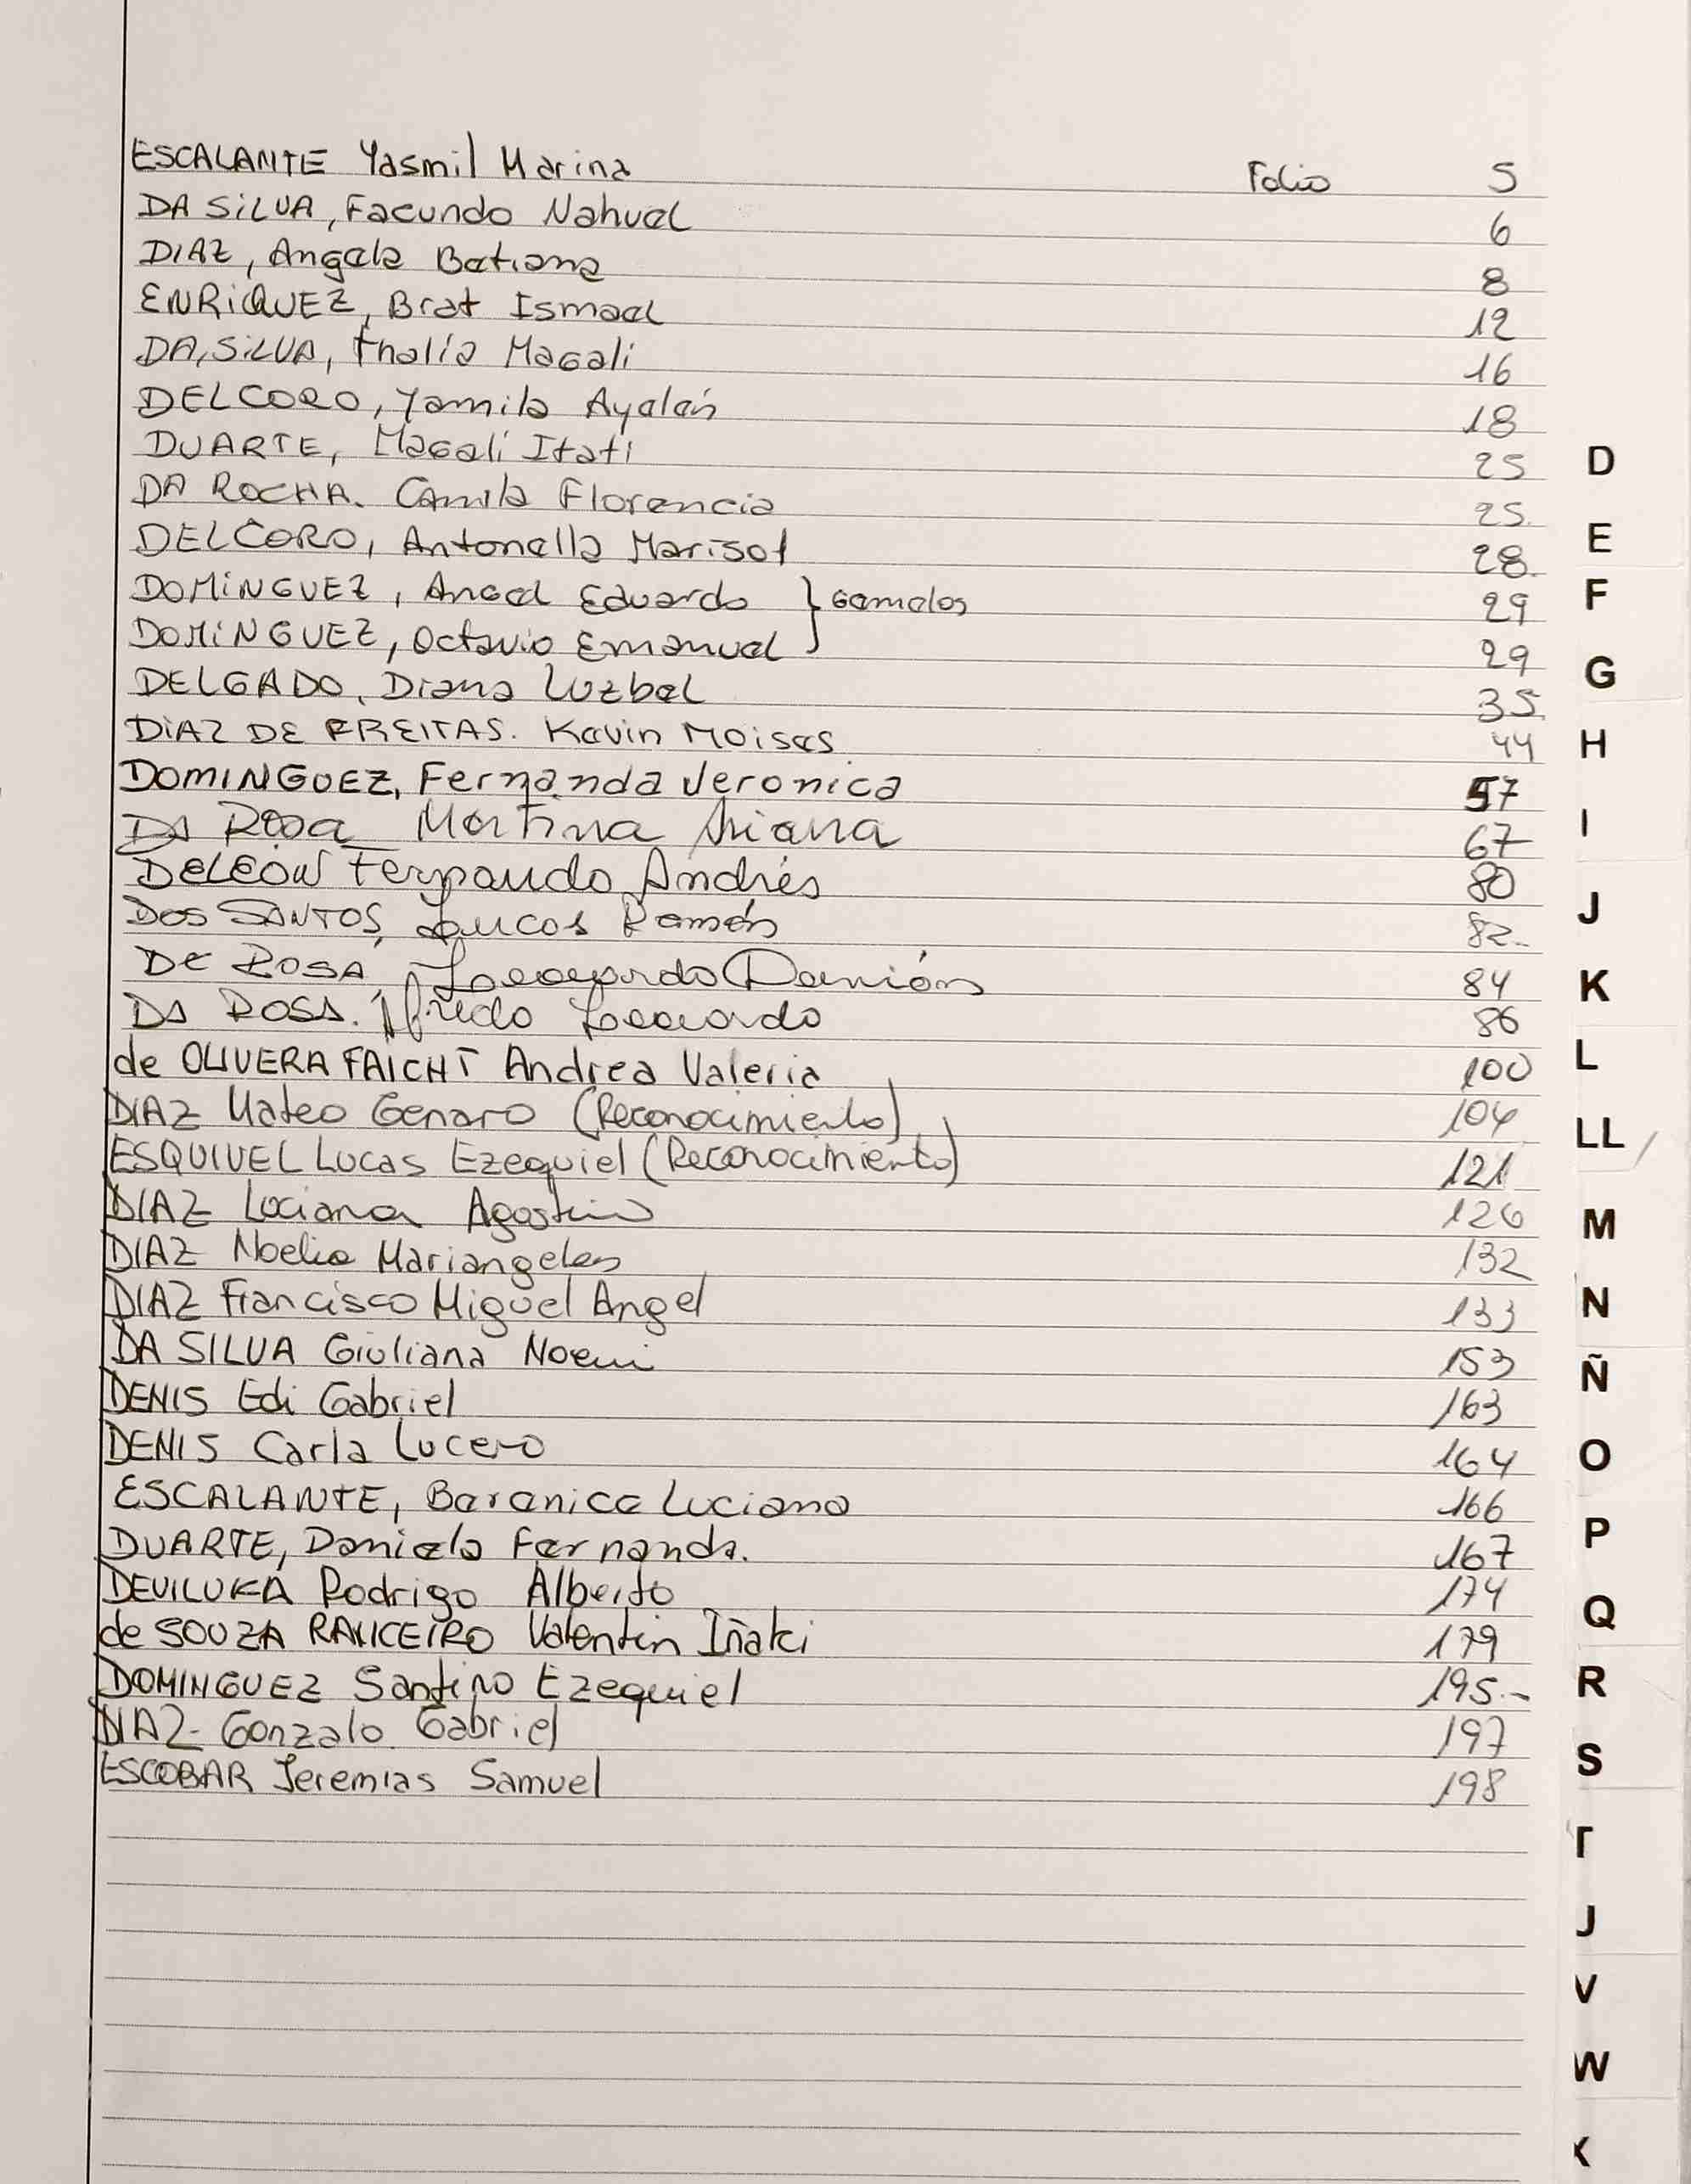 ESCALANTE Yasmil Marina Folio 5
DA SILVA, Facundo Nahuel 6
DIAZ, Angela Betiana 8
ENRIQUEZ, Brat Ismael 12
DA SILVA, Thalía Magali 16
DELCORO, Yamila Ayelén 18
DUARTE, Magalí Itatí 25
DA ROCHA. Camila Florencia 25.
DELCORO, Antonella Marisol 28.
DOMINGUEZ, Angel Eduardo } Gemelos 29
DOMINGUEZ, Octavio Emanuel 29
DELGADO, Diana Luzbel 35.
DIAZ DE FREITAS. Kevin Moises. 44
DOMINGUEZ, Fernanda Veronica 57
DA ROSA Martina Ariana 67
DELEÓN Fernando Andrés 80
DOS SANTOS, Lucas Ramón 82.
DE ROSA, Leonardo Damián 84
DA ROSA. Alfredo Leonardo 86
de OLIVERA FAICHT Andrea Valeria 100
DIAZ Mateo Genaro (Reconocimiento) 104
ESQUIVEL Lucas Ezequiel (Reconocimiento) 121
DIAZ Luciana Agostina 126
DIAZ Noelia Mariangeles 132
DIAZ Francisco Miguel Angel 133
DA SILVA Giuliana Noemi 153
DENIS Edi Gabriel 163
DENIS Carla Lucero 164
ESCALANTE, Berenice Luciana 166
DUARTE, Daniela Fernanda. 167
DEVILUKA Rodrigo Alberto 174
de SOUZA Valentin Iñaki 179
DOMINGUEZ Santino Ezequiel 195.-
DIAZ - Gonzalo Gabriel 197
ESCOBAR Jeremias Samuel 198
D
E
F
G
H
I
J
K
L
LL
M
N
Ñ
O
P
Q
R
S
T
V
W